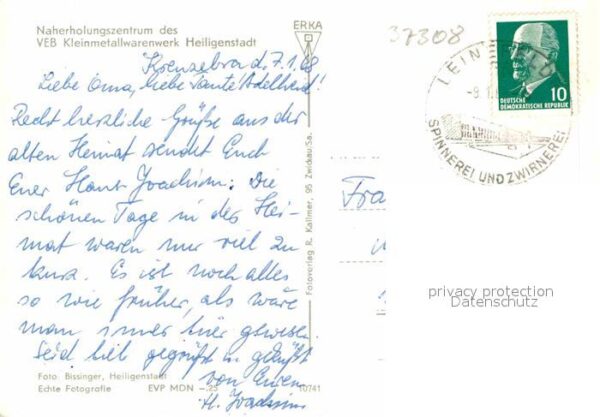 Naherholungszentrum des
VEB Kleinmetallwarenwerk Heiligenstadt
Kreuzebra d. 7.1.68
Liebe Oma, liebe Tante Adelheid!
Recht herzliche Grüße aus der
alten Heimat sendet Euch
Euer Hans Joachim. Die
schönen Tage in der Hei-
mat waren nur viel zu
kurz. Es ist noch alles
so wie früher, als wäre
man immer hier gewesen.
Seid lieb gegrüßt u. geküßt
von Euren
H. Joachim
Foto Bissinger, Heiligenstadt
Echte Fotografie EVP MDN -.25 10741
ERKA
Fotoverlag R. Kallmer, 95 Zwickau/Sa.
37308
LEIN
SPINNEREI UND ZWIRNEREI
10
DEUTSCHE
DEMOKRATISCHE REPUBLIK
Fra
privacy protection
Datenschutz